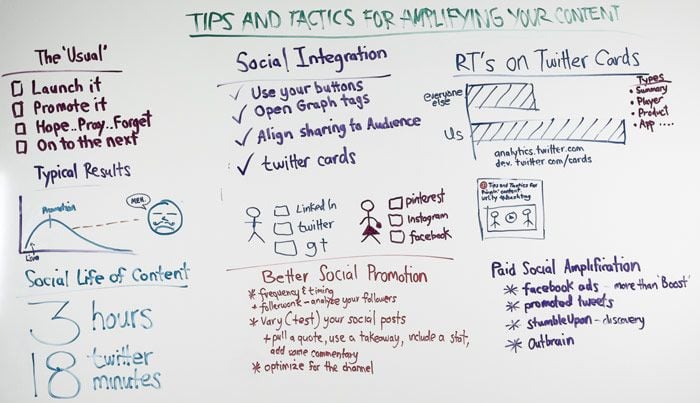 TIPS AND TACTICS FOR AMPLIFYING YOUR CONTENT
The 'Usual'
Launch it
Promote it
Hope..Pray..Forget
On to the next
Typical Results
MEH.
Promotion
Live
Social Life of Content
3 hours
18 twitter minutes
Social Integration
✓ Use your buttons
✓ Open Graph tags
✓ Align sharing to Audience
✓ twitter cards
Linked In
twitter
g+
pinterest
Instagram
facebook
Better Social Promotion
* frequency & timing
+ followerwonk - analyze your followers
* Vary (test) your social posts
+ pull a quote, use a takeaway, include a stat,
add some commentary
* optimize for the channel
RT's on Twitter Cards
everyone
else
Us
Types
• Summary
• Player
• Product
• App ....
analytics.twitter.com
dev.twitter.com/cards
Tips and Tactics for
content
Paid Social Amplification
* facebook ads - more than 'Boost'
* promoted tweets
* stumbleUpon - discovery
* Outbrain